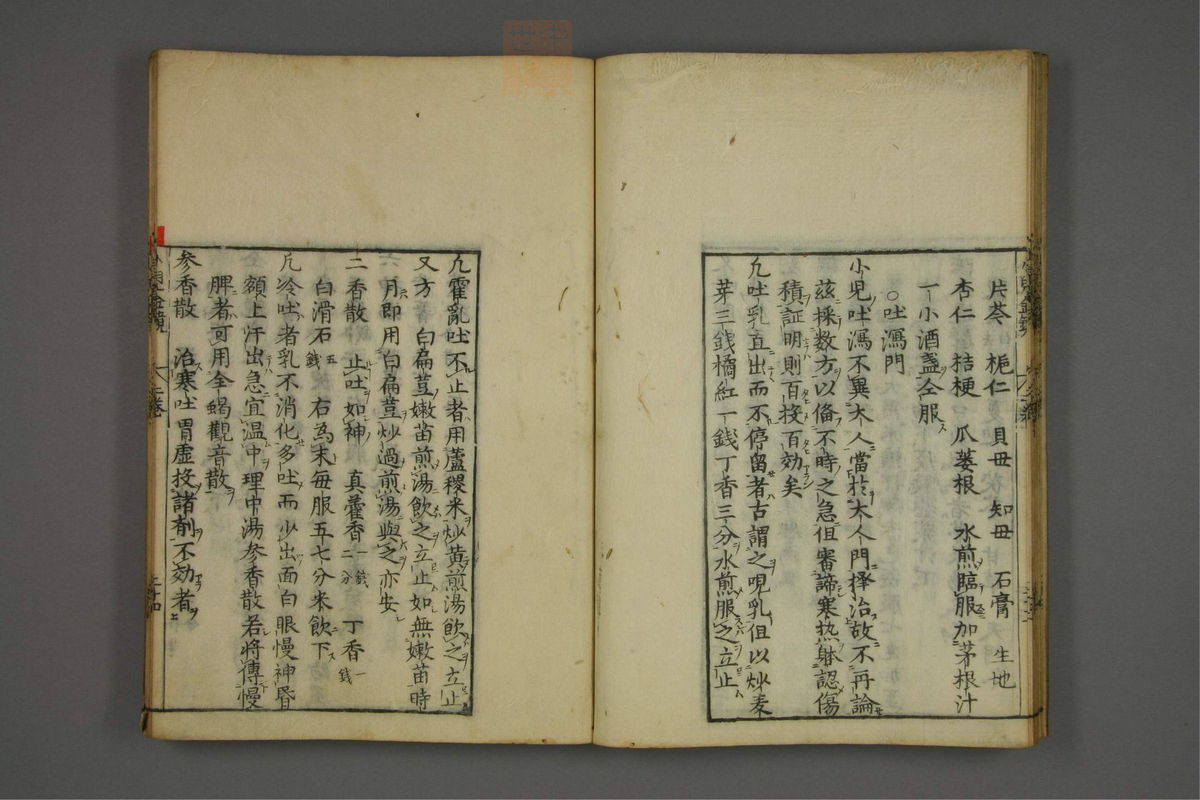 片芩　梔仁　貝母　知母　石膏　生地
杏仁　桔梗　瓜蔞根　水煎臨服加茅根汁
一小酒盞仝服
○吐瀉門
小児吐瀉不異大人當於大人門擇治故不再論
茲採数方以俻不時之急但審諦寒热躰認傷
積証明則百投百効矣
凢吐乳直出而不停留者古謂之哯乳但以炒麦
芽三銭橘紅一銭丁香三分水煎服之立止
凢霍亂吐不止者用蘆稷米炒黄煎湯飲之立止
又方　白扁荳嫩苗煎湯飲之立止如無嫩苗時
月即用白扁荳炒過煎湯與之亦安
二香散　止吐如神　真藿香一銭二分　丁香一銭
白滑石五銭　右為末毎服五七分米飲下
凢冷吐者乳不消化多吐而少出面白眼慢神昏
額上汗出急宜温中理中湯参香散若將傳慢
脾者可用全蝎觀音散
参香散　治寒吐胃虚投諸剤不効者